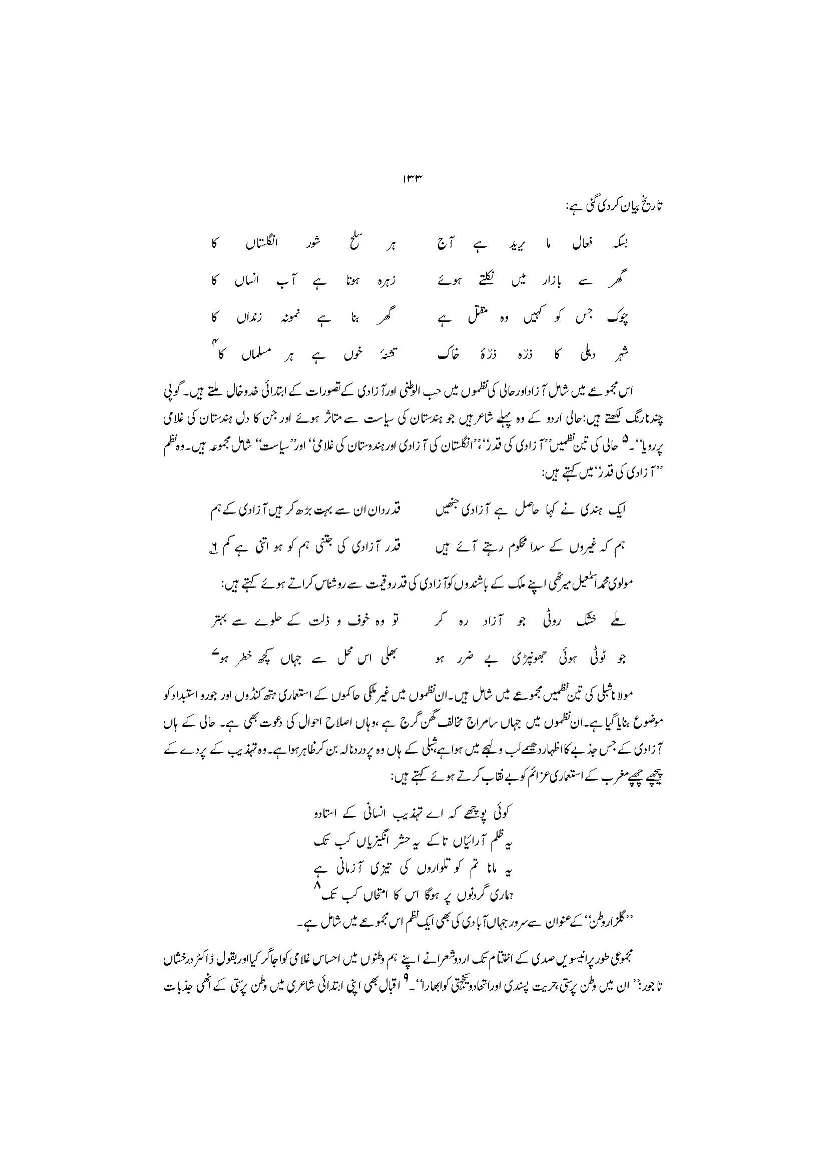 ۱۳۳
تاریخ بیان کر دی گئی ہے:
بسکہ فعالِ ما یرید ہے آج ہر سلح شور انگلستاں کا
گھر سے بازار میں نکلتے ہوئے زہرہ ہوتا ہے آب انساں کا
چوک جس کو کہیں وہ مقتل ہے گھر بنا ہے نمونہ زنداں کا
شہر دہلی کا ذرّہ ذرّۂ خاک تشنۂ خوں ہے ہر مسلماں کا۴
اس مجموعے میں شامل آزاد اور حالی کی نظموں میں حب الوطنی اور آزادی کے تصورات کے ابتدائی خدوخال ملتے ہیں۔ گوپی
چند نارنگ لکھتے ہیں:حالی اردو کے وہ پہلے شاعر ہیں جو ہندستان کی سیاست سے متاثر ہوئے اور جن کا دل ہندستان کی غلامی
پر رویا‘‘۔۵ حالی کی تین نظمیں’’آزادی کی قدر‘‘،’’انگلستان کی آزادی اور ہندوستان کی غلامی‘‘ اور’’سیاست‘‘ شامل مجموعہ ہیں۔ وہ نظم
’’آزادی کی قدر‘‘میں کہتے ہیں:
ایک ہندی نے کہا حاصل ہے آزادی جنھیں قدرداں ان سے بہت بڑھ کر ہیں آزادی کے ہم
ہم کہ غیروں کے سدا محکوم رہتے آئے ہیں قدر آزادی کی جتنی ہم کو ہو اتنی ہے کم ۶
مولوی محمد اسمٰعیل میرٹھی اپنے ملک کے باشندوں کو آزادی کی قدر و قیمت سے روشناس کراتے ہوئے کہتے ہیں:
ملے خشک روٹی جو آزاد رہ کر تو وہ خوف و ذلت کے حلوے سے بہتر
جو ٹوٹی ہوئی جھونپڑی بے ضرر ہو بھلی اس محل سے جہاں کچھ خطر ہو۷
مولانا شبلی کی تین نظمیں مجموعے میں شامل ہیں۔ان نظموں میں غیر ملکی حاکموں کے استعماری ہتھ کنڈوں اور جورو استبداد کو
موضوع بنایا گیا ہے۔ان نظموں میں جہاں سامراج مخالف گھن گرج ہے ،وہاں اصلاح احوال کی دعوت بھی ہے۔ حالی کے ہاں
آزادی کے جس جذبے کا اظہار دھیمے لب و لہجے میں ہوا ہے،شبلی کے ہاں وہ پردرد نالہ بن کر ظاہر ہوا ہے۔وہ تہذیب کے پردے کے
پیچھے چھپے مغرب کے استعماری عزائم کو بے نقاب کرتے ہوئے کہتے ہیں:
کوئی پوچھے کہ اے تہذیب انسانی کے استادو
یہ ظلم آرائیاں تاکے یہ حشر انگیزیاں کب تک
یہ مانا تم کو تلواروں کی تیزی آزمانی ہے
ہماری گردنوں پر ہوگا اس کا امتحاں کب تک۸
’’گلزارِ وطن‘‘کے عنوان سے سرور جہاں آبادی کی بھی ایک نظم اس مجموعے میں شامل ہے۔
مجموعی طور پر انیسویں صدی کے اختتام تک اردو شعرا نے اپنے ہم وطنوں میں احساس غلامی کو اجاگر کیا اور بقول ڈاکٹر درخشاں
تاجور:’’ان میں وطن پرستی،حریت پسندی اور اتحاد و یکجہتی کو ابھارا‘‘۔۹ اقبال بھی اپنی ابتدائی شاعری میں وطن پرستی کے انھی جذبات